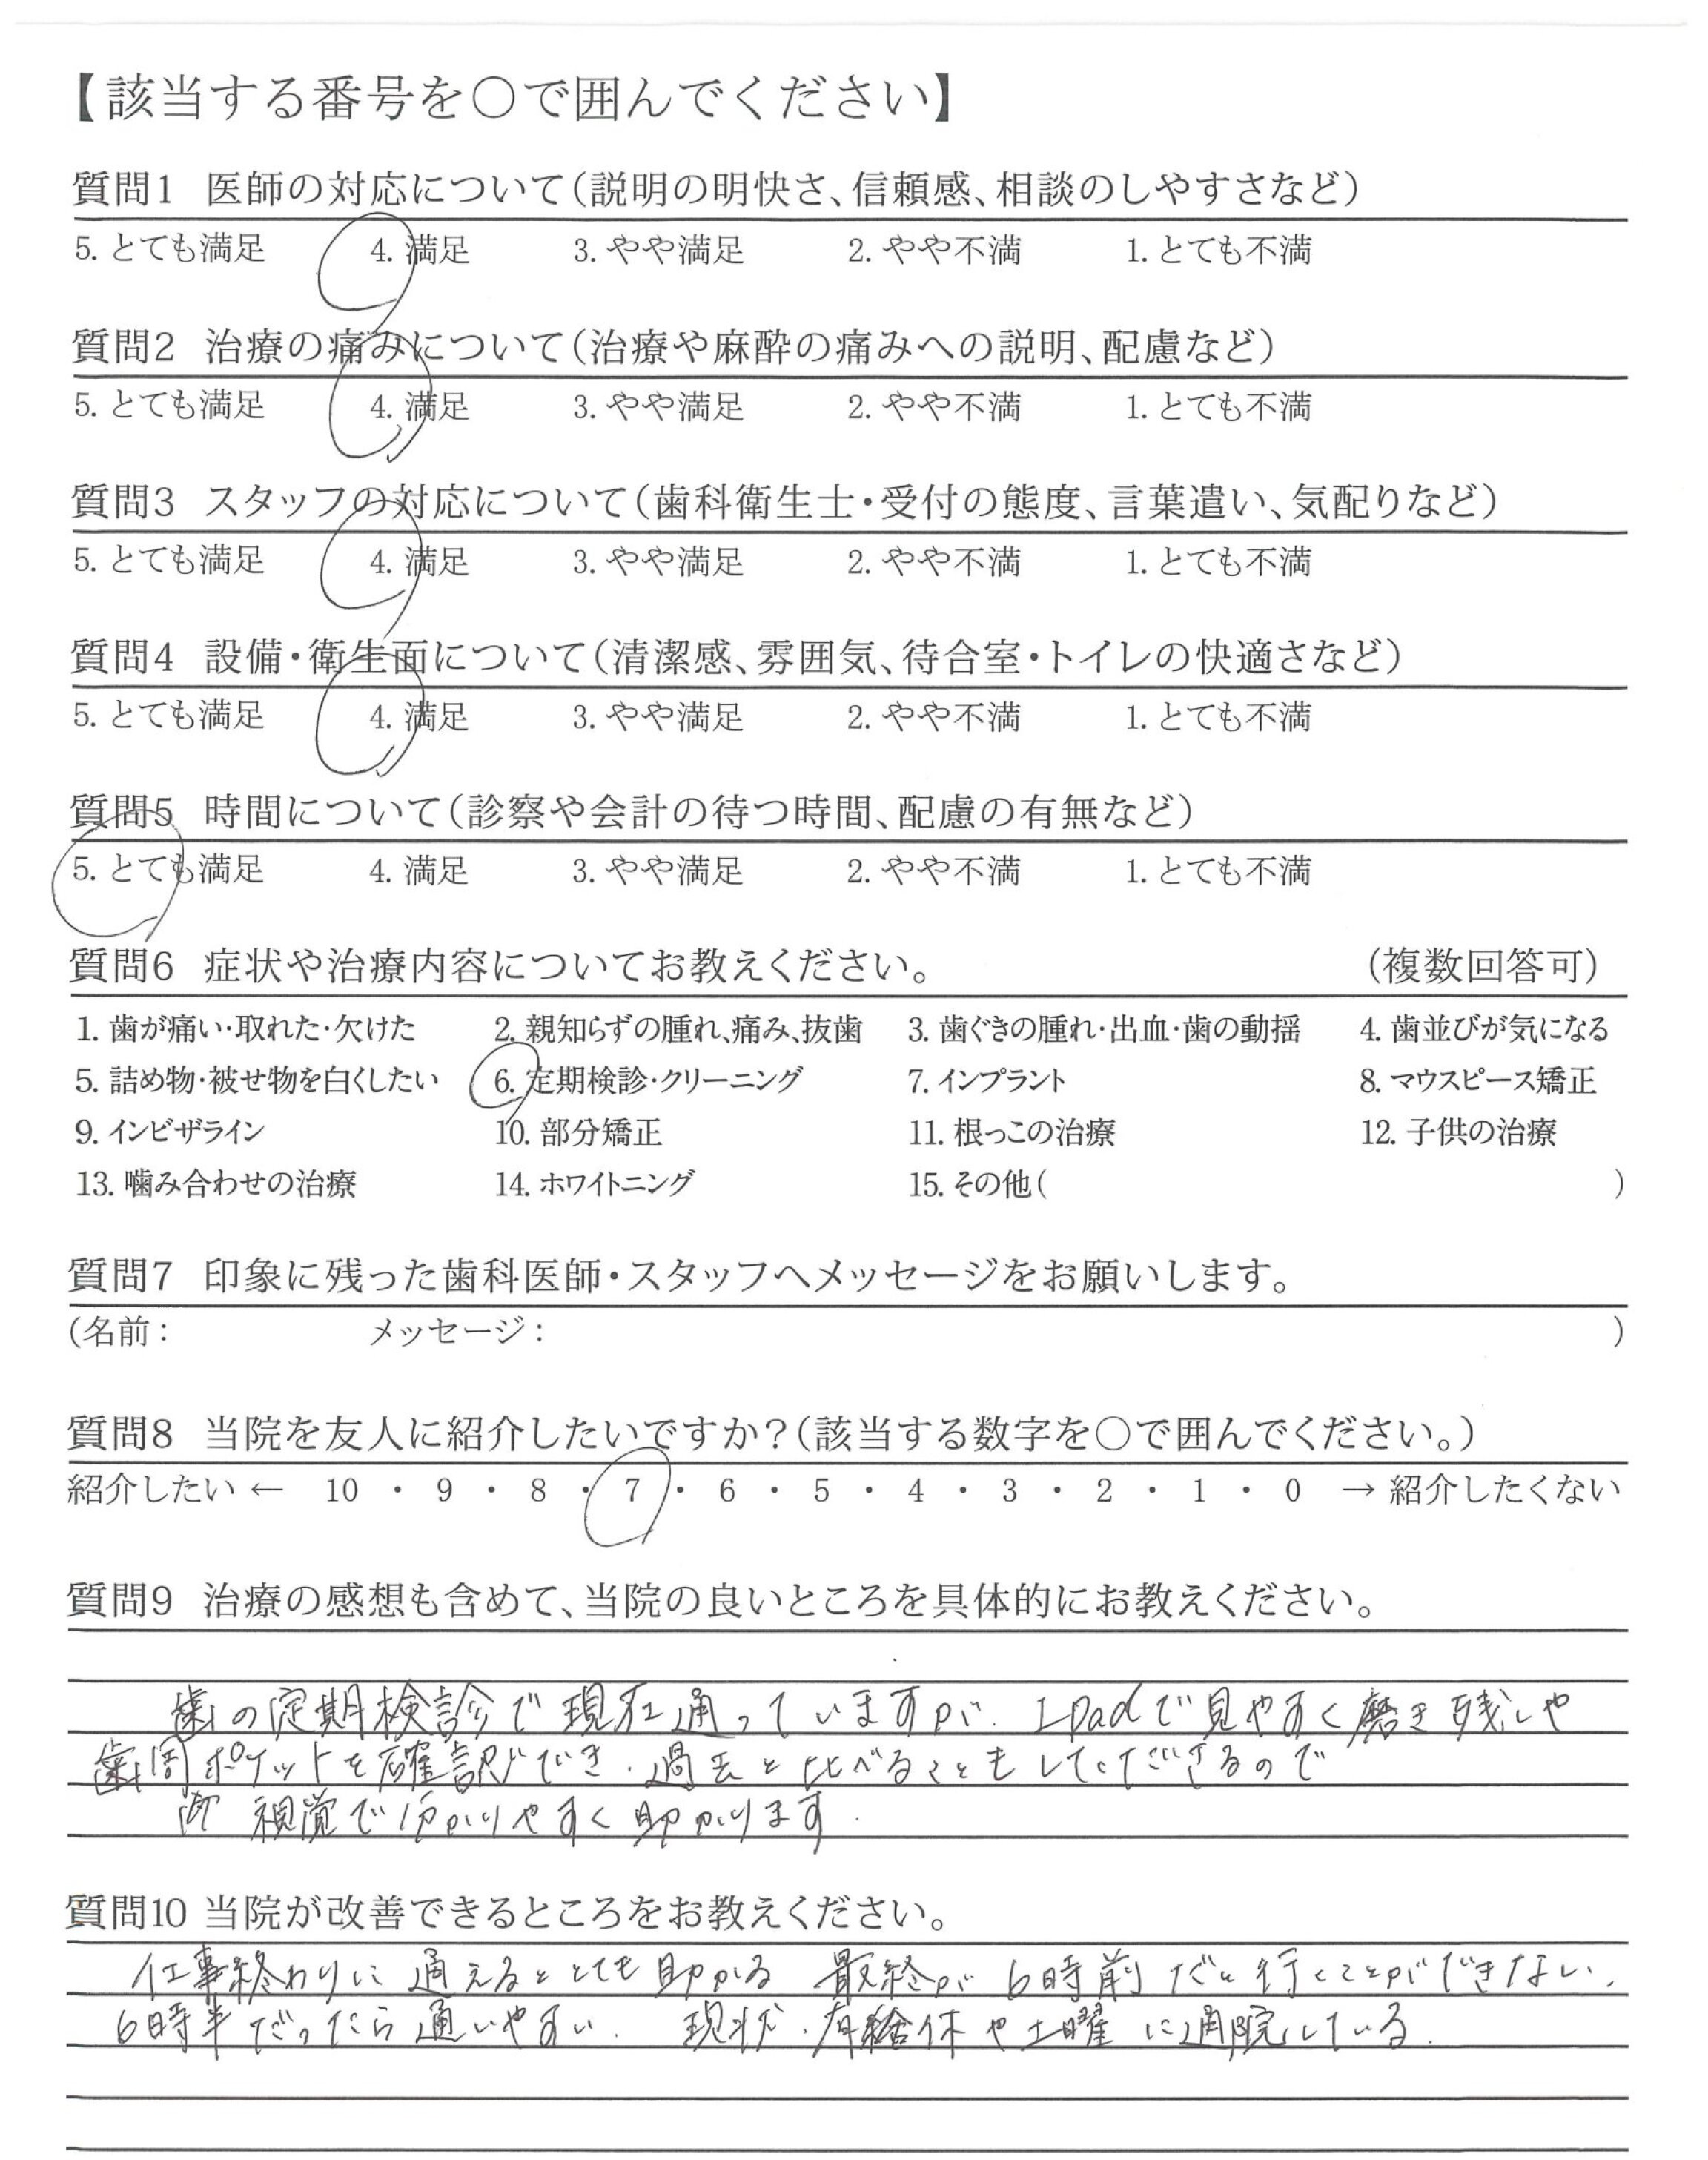 【該当する番号を○で囲んでください】
質問1 医師の対応について(説明の明快さ、信頼感、相談のしやすさなど)
5. とても満足 4. 満足 3. やや満足 2. やや不満 1. とても不満
質問2 治療の痛みについて(治療や麻酔の痛みへの説明、配慮など)
5. とても満足 4. 満足 3. やや満足 2. やや不満 1. とても不満
質問3 スタッフの対応について(歯科衛生士・受付の態度、言葉遣い、気配りなど)
5. とても満足 4. 満足 3. やや満足 2. やや不満 1. とても不満
質問4 設備・衛生面について(清潔感、雰囲気、待合室・トイレの快適さなど)
5. とても満足 4. 満足 3. やや満足 2. やや不満 1. とても不満
質問5 時間について(診察や会計の待つ時間、配慮の有無など)
5. とても満足 4. 満足 3. やや満足 2. やや不満 1. とても不満
質問6 症状や治療内容についてお教えください。 (複数回答可)
1. 歯が痛い・取れた・欠けた 2. 親知らずの腫れ、痛み、抜歯 3. 歯ぐきの腫れ・出血・歯の動揺 4. 歯並びが気になる
5. 詰め物・被せ物を白くしたい 6. 定期検診・クリーニング 7. インプラント 8. マウスピース矯正
9. インビザライン 10. 部分矯正 11. 根っこの治療 12. 子供の治療
13. 噛み合わせの治療 14. ホワイトニング 15. その他( )
質問7 印象に残った歯科医師・スタッフへメッセージをお願いします。
(名前: メッセージ: )
質問8 当院を友人に紹介したいですか?(該当する数字を○で囲んでください。)
紹介したい ← 10 ・ 9 ・ 8 ・ 7 ・ 6 ・ 5 ・ 4 ・ 3 ・ 2 ・ 1 ・ 0 → 紹介したくない
質問9 治療の感想も含めて、当院の良いところを具体的にお教えください。
歯の定期検診で現在通っていますが、IPadで見やすく磨き残しや
歯周ポケットを確認ができ、過去と比べることもしてくださるので
視覚で分かりやすく助かります.
質問10 当院が改善できるところをお教えください。
仕事終わりに通えるととても助かる 最終が6時前だと行くことができない.
6時半だったら通いやすい. 現状、有給休や土曜に通院している.